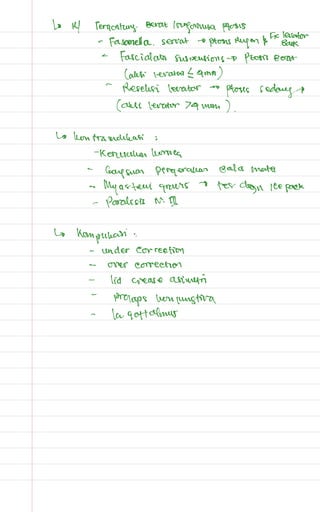 ↳ R/ Tergantung Berat / ringannya ptosis
- Fasanella servat → ptosis Ringan & Fx levator Baik
- Fascialata suspensions → Ptosis Berat
(aksi levator ≤ 4mm)
- Reseksi levator → ptosis sedang
(aksi levator > 4 mm)
↳ Kontraindikasi :
- Kerusakan kornea
- Gangguan pergerakan Bola mata
- Myasteni gravis → tes dengan Ice pack
- Paralisis N. III
↳ Komplikasi :
- under correction
- over correction
- lid crease asimetri
- Prolaps konjungtiva
- lagoftalmus